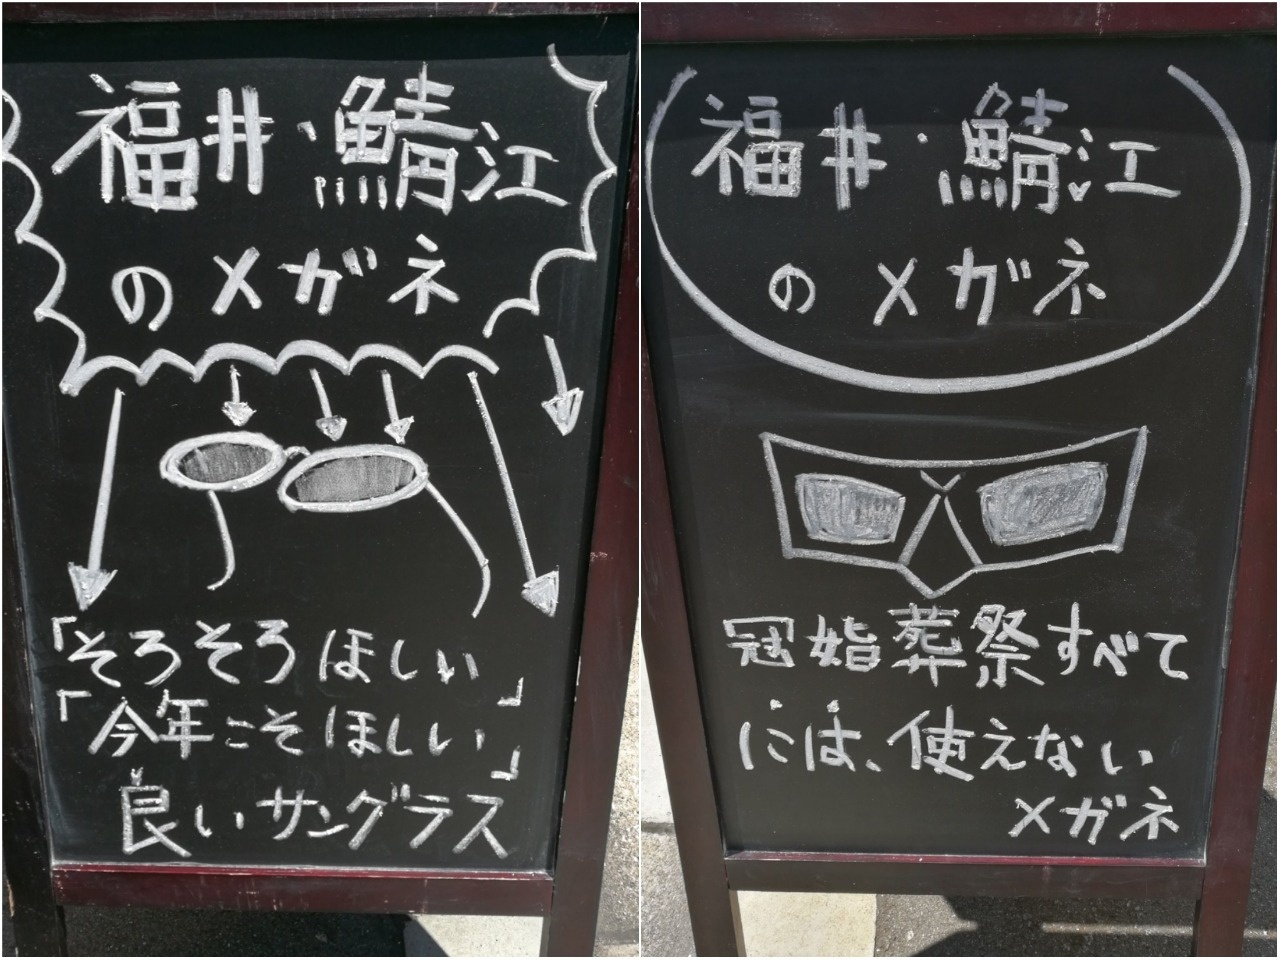 福井・鯖江
のメガネ
「そろそろほしい」
「今年こそほしい」
良いサングラス
福井・鯖江
のメガネ
冠婚葬祭すべて
には、使えない
メガネ